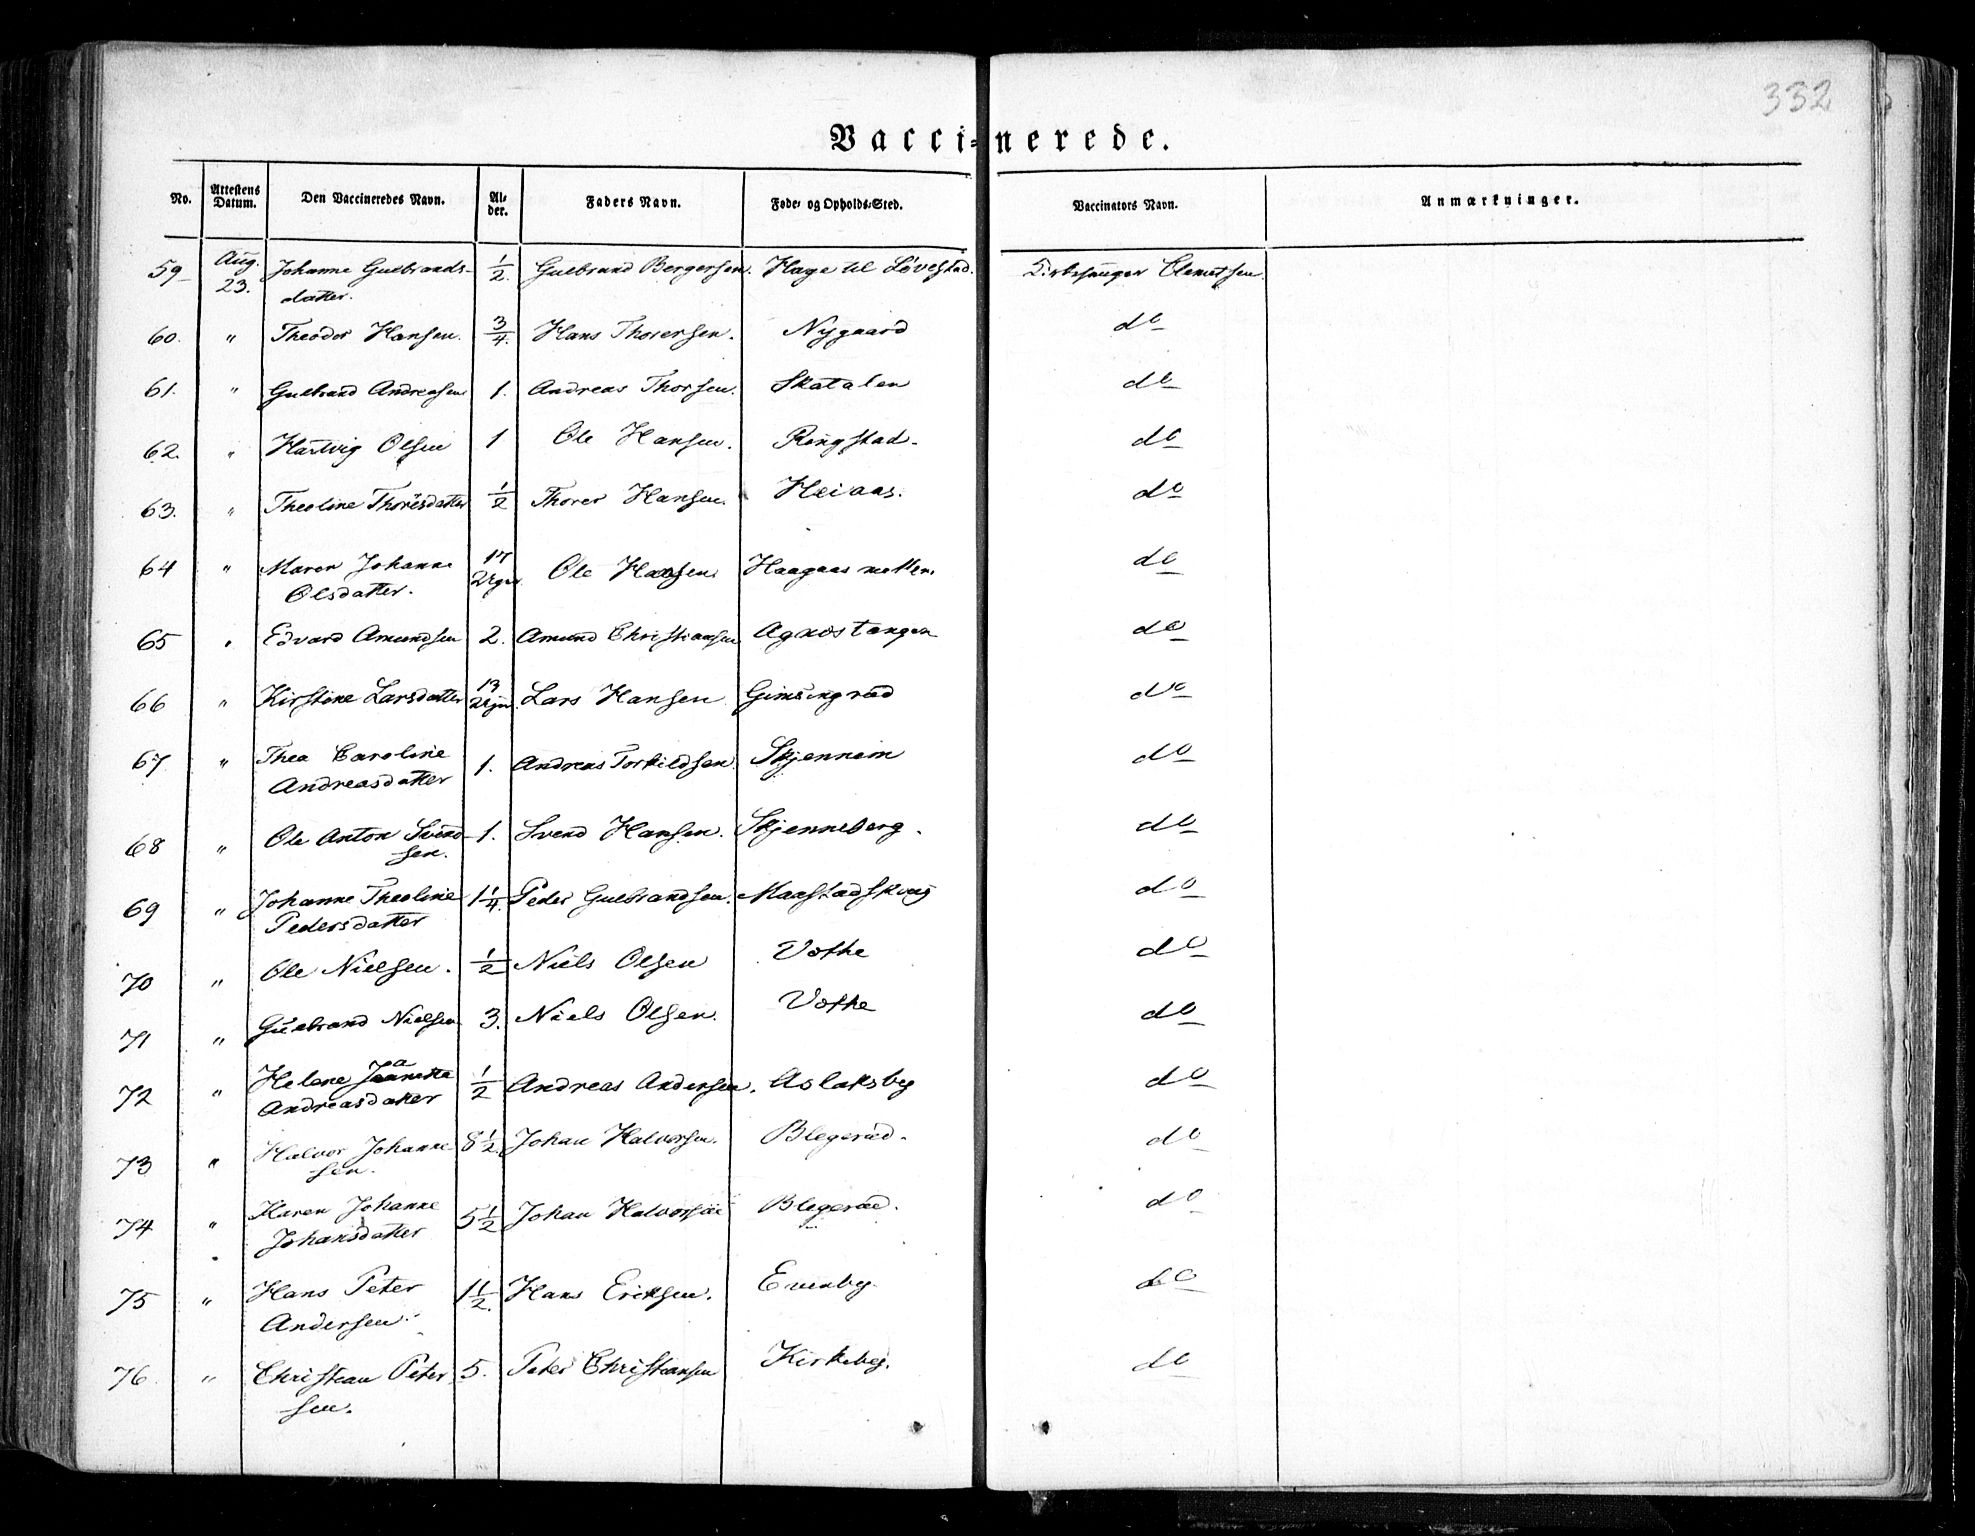 332
Vacci-nerede.
No. Attestens Datum. Den Vaccineredes Navn. Al-der. Faders Navn. Føde- og Opholds-Sted. Vaccinators Navn. Anmærkninger.
59 Aug. 23. Johanne Gulbrands- 1/2 Gulbrand Bergersen. Hage til Løvestad. Kirkesanger Clemetsen
datter.
60. " Theodor Hansen. 3/4. Hans Thorersen. Nygaard do
61. " Gulbrand Andreasen 1. Andreas Thorsen. Skatalen do
62. " Hartvig Olsen 1 Ole Hansen. Ringstad. do
63. " Theoline Thoresdatter 1/2 Thorer Hansen. Heiaas. do
64 " Maren Johanne 17 Ole Hansen Haagaas do
Olsdatter.
65 " Edvard Amundsen 2. Amund Christiansen Agnostangen do
66 " Kirstine Larsdatter 13 Lars Hansen Gimsingrød do
67 " Thea Caroline 1. Andreas Torkildsen. Skjennem do
Andreasdatter
68 " Ole Anton Svend- 1. Svend Hansen. Skjenneberg. do
sen.
69 " Johanne Theoline 1 1/4. Peder Gulbrandsen. do
Pedersdatter
70 " Ole Nielsen. 1/2 Niels Olsen Vothe do
71 " Gulbrand Nielsen 3. Niels Olsen. Vothe do
72 " Helene Jeanette 1/2 Andreas Andersen. Aslaksby do
Andreasdatter
73 " Halvor Johanne 8 1/2. Johan Halvorsen. Blegerød. do
sen.
74 " Karen Johanne 5 1/2 Johan Halvorsen Blegerød. do
Johansdatter
75 " Hans Peter 1 1/2. Hans Eriksen. Evenby. do
Andersen.
76. " Christian Peter 5. Peter Christiansen Kirkeby. do
sen.